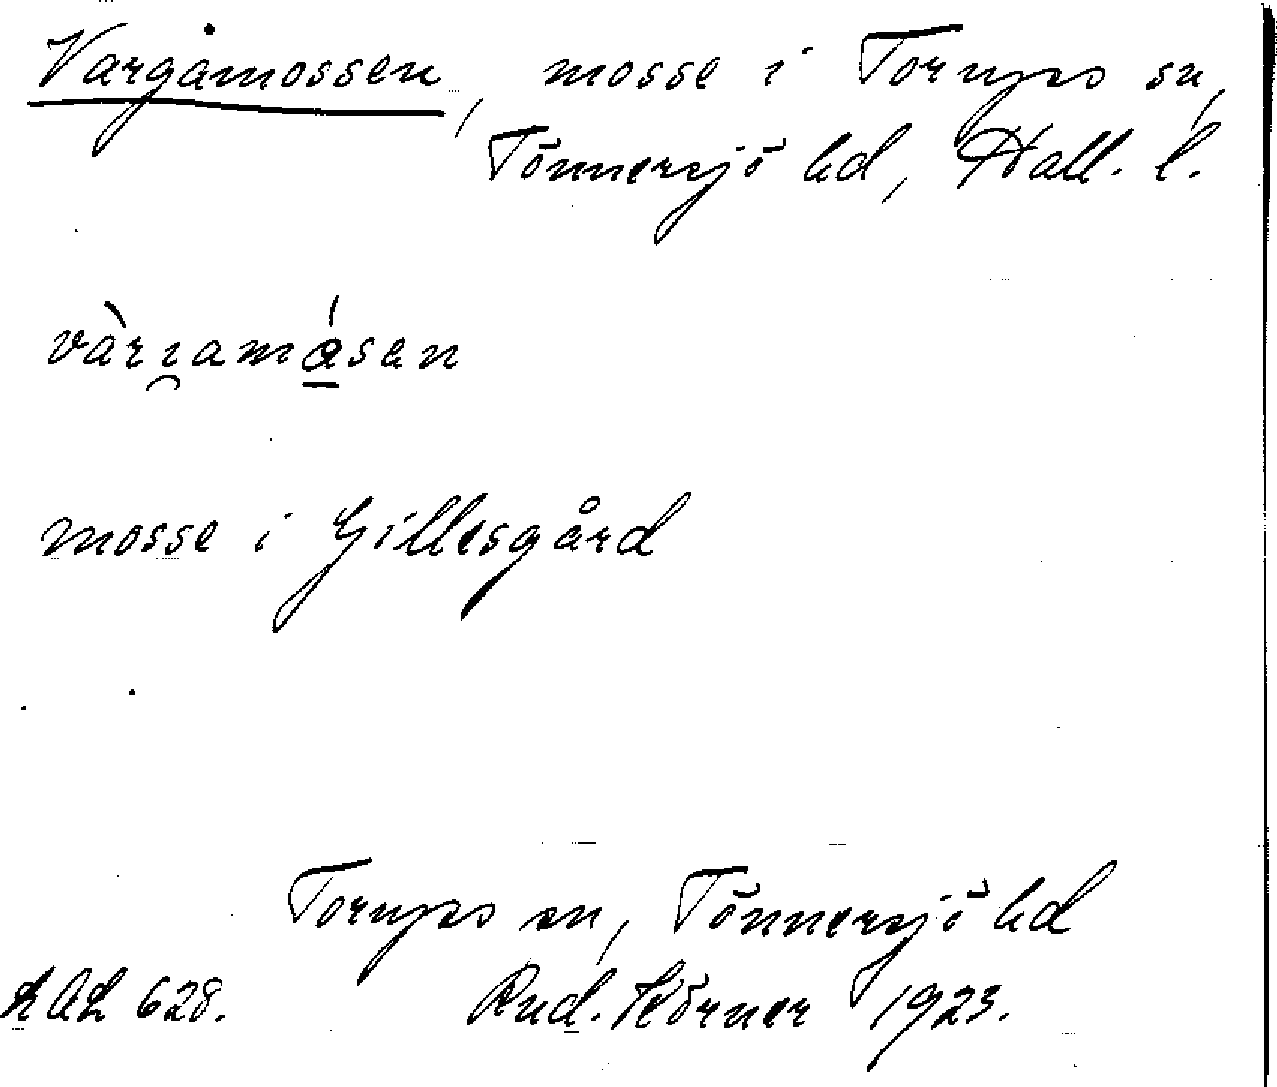 Vargåmossen, mosse i Tornps sn,
Tönnersjö hd, Hall. l.
mosse i Gillesgård
Tornps sn, Tönnersjö hd
LAL 628. Rud. Körner 1923.